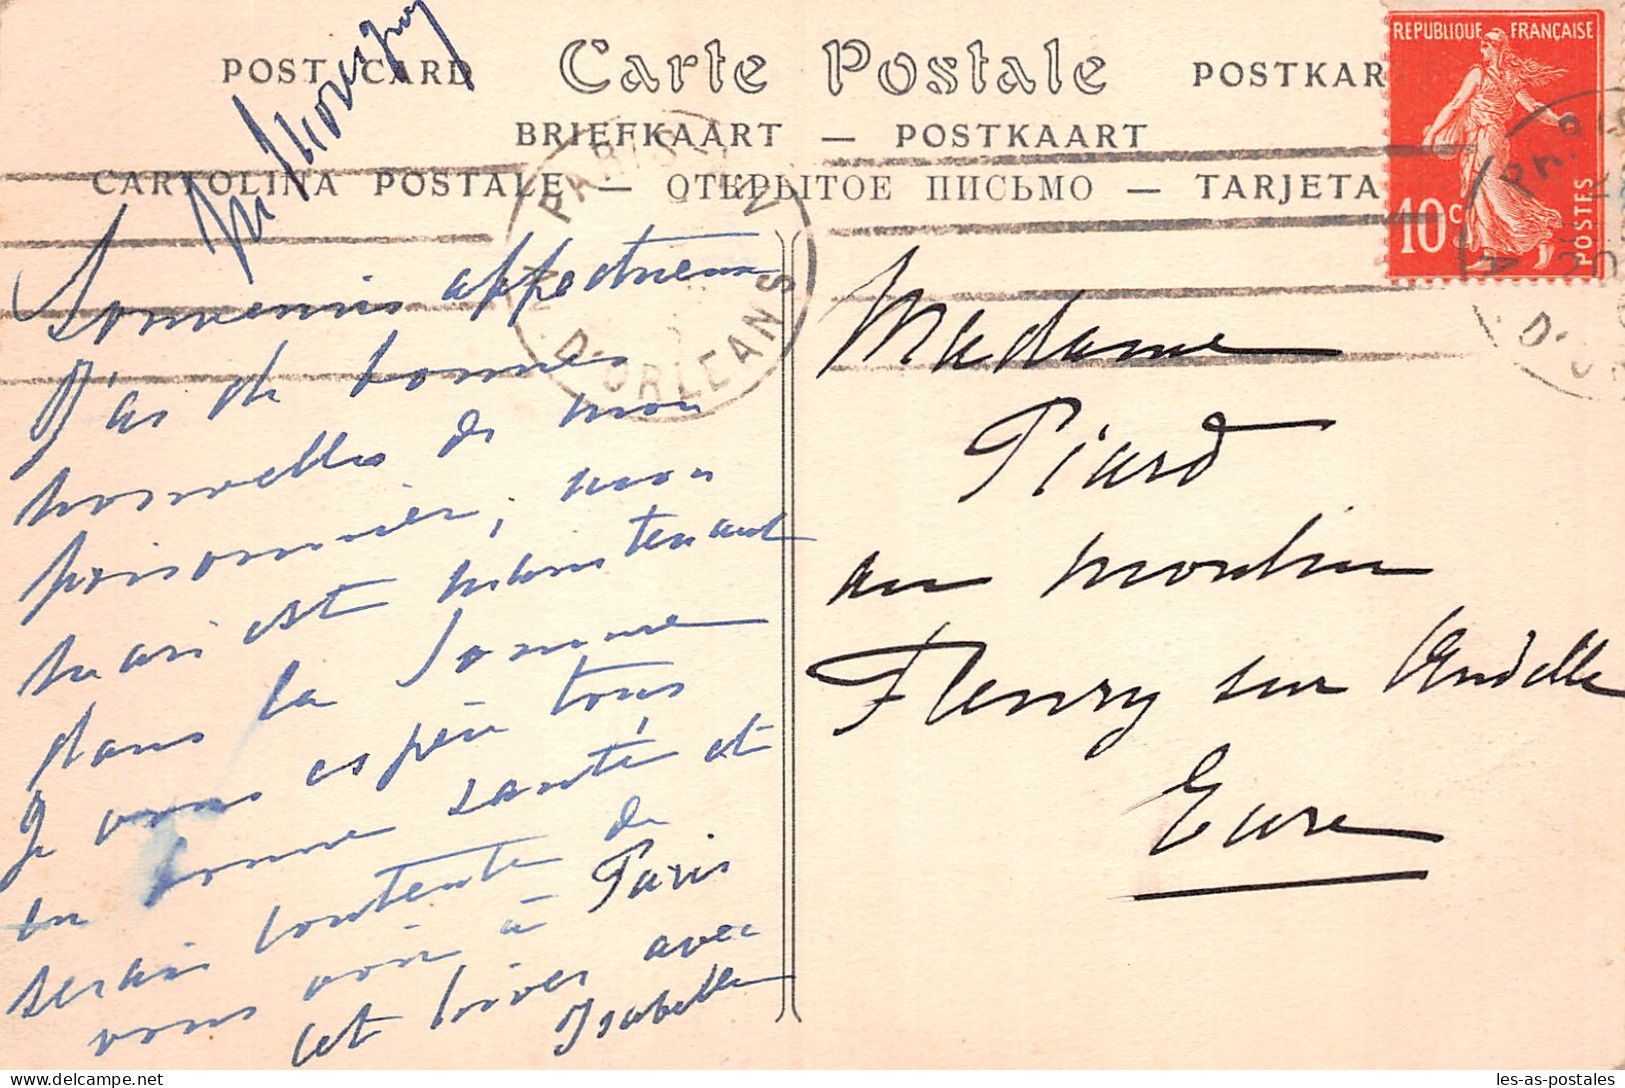 POST CARD Carte Postale POSTKAR
BRIEFKAART — POSTKAART
CARTOLINA POSTALE — ОТКРЫТОЕ ПИСЬМО — TARJETA
REPUBLIQUE FRANÇAISE
10c
POSTES
PARIS
D'ORLEANS
PARIS
D'OR
Souvenirs affectueux
J'ai de bonnes
nouvelles de mon
prisonnier, mon
mari est maintenant
dans la Somme
Je vous espère tous
en bonne santé et
serais contente de
vous voir à Paris
cet hiver avec
Isabelle
Madame
Piard
au moulin
Fleury sur Andelle
Eure
les-as-postales